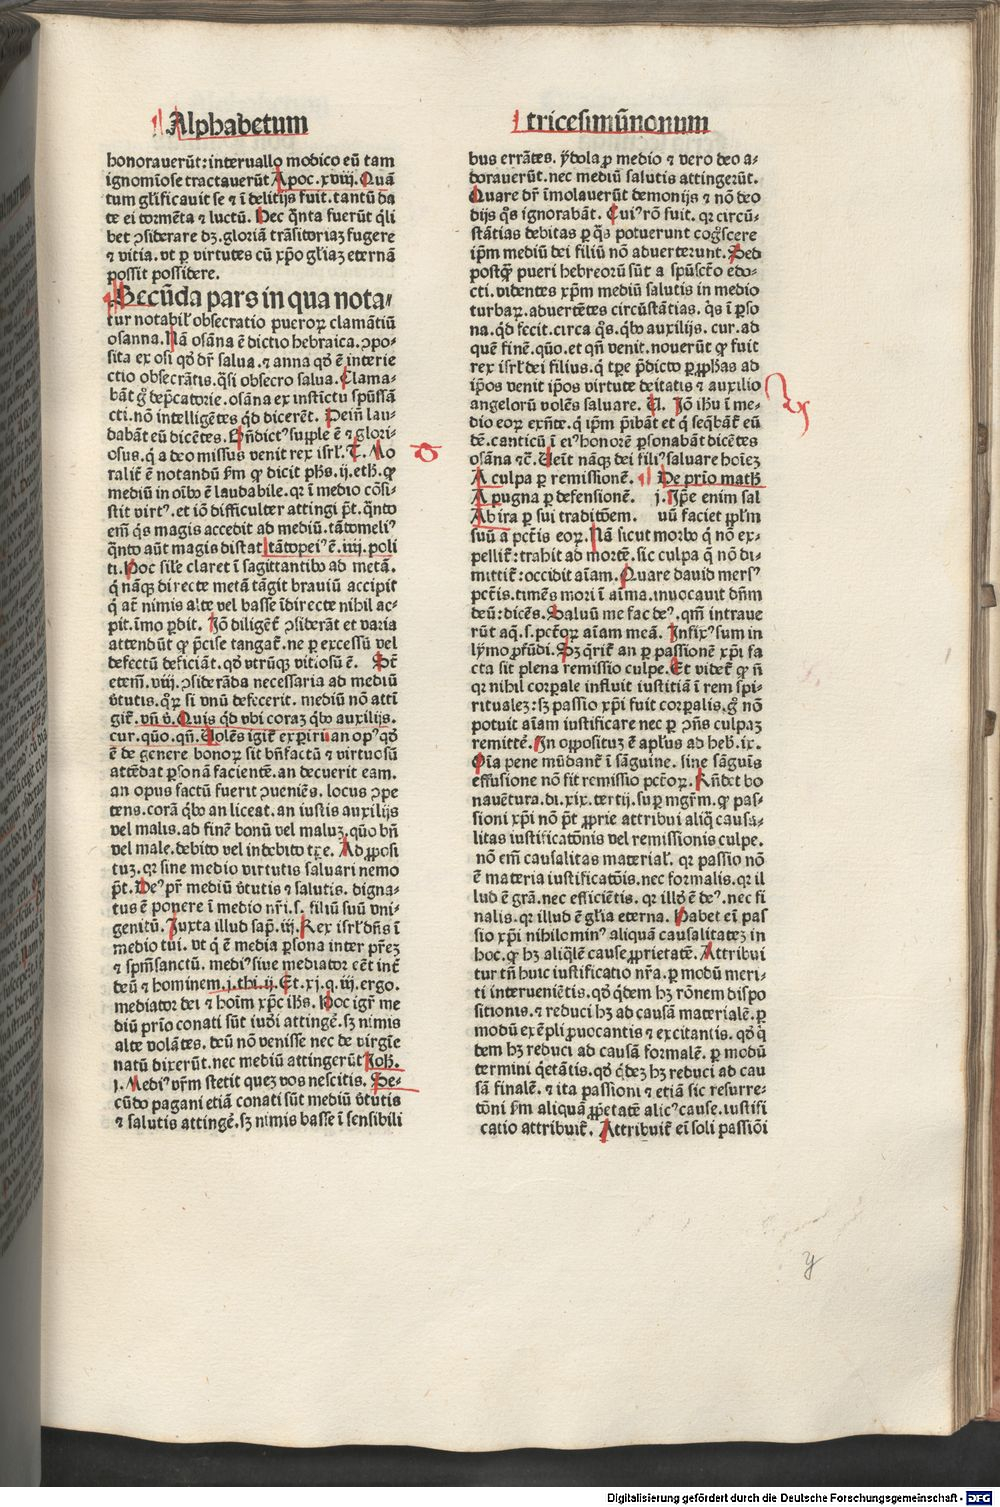 Alphabetum
tricesimūnonum
honorauerūt: interuallo modico eū tam
ignomīose tractauerūt Apoc. xviij. Quā
tum gl̄ificauit se ⁊ ī delitijs fuit. tantū da
te ei tormēta ⁊ luctū. Hec q̄nta fuerūt q̄li
bet ꝯsiderare dꝫ. gloriā trāsitoriaꝫ fugere
⁊ vitia. vt ꝑ virtutes cū xp̄o gl̄iaꝫ eternā
possit possidere.
Secūda pars in qua nota⸗
tur notabil̄ obsecratio pueroꝝ clamātiū
osanna. Nā osāna ē dictio hebraica. ꝯpo⸗
sita ex osi qḋ dr̄ salua. ⁊ anna qḋ ē interie
ctio obsecrātis. q̄si obsecro salua. Clama⸗
bāt g̊ dep̄catorie. osāna ex instictu spūssā
cti. nō intelligētes qd̄ dicerēt. Dein̄ lau⸗
dabāt eū dicētes. Bn̄dictꝰ supple ē ⁊ glori⸗
osus. q̇ a deo missus venit rex isrl̄. T. Mo
ralit̄ ē notandū s̄m ꝙ dicit ph̄s. ij. eth. ꝙ
mediū in oībꝰ ē laudabile. qꝛ ī medio cōsi⸗
stit virtꝰ. et iō difficulter attingi p̄t. q̄nto
em̄ q̇s magis accedit ad mediū. tātomeliꝰ
q̄nto aūt magis distat tātopeiꝰ ē. iiij. poli
ti. Hoc sil̄e claret ī sagittantibꝰ ad metā.
q̇ nāqꝫ directe metā tāgit brauiū accipit
q̇ aūt nimis alte vel basse īdirecte nihil ac⸗
pit. īmo ꝑdit. Jō diligēt̄ ꝯsiderāt et varia
attendūt ꝙ p̄cise tangat̄. ne ꝑ excessū vel
defectū deficiāt. qḋ vtrūqꝫ vitiosū ē. St̄
etem̄. viij. ꝯsiderāda necessaria ad mediū
v̄tutis. q̄ꝝ si vnū defecerit. mediū nō attī
git̄. vn̄ v̊. Quis qd̄ vbi coraꝫ q̇bꝰ auxilijs.
cur. quō. qn̄. Uolēs igit̄ experiri an opꝰ qḋ
ē de genere bonoꝝ sit bn̄factū ⁊ virtuosū
attēdat ꝑsonā faciente. an decuerit eam.
an opus factū fuerit ꝯueniēs. locus ꝯpe
tens. corā q̇bꝰ an liceat. an iustis auxilijs
vel malis. ad finē bonū vel maluꝫ. quō bn̄
vel male. debito vel indebito tꝑe. Ad ꝓposi
tuꝫ. qꝛ sine medio virtutis saluari nemo
p̄t. Deꝰ pr̄ mediū v̄tutis ⁊ salutis. digna⸗
tus ē ponere ī medio nr̄i. s. filiū suū vni⸗
genitū. Juxta illud sap̄. iij. Rex isrl̄ dn̄s ī
medio tui. vt q̇ ē media ꝑsona inter pr̄eꝫ
⁊ spm̄sanctū. mediꝰ siue mediator cēt int̄
deū ⁊ hominem. j. thi. ij. Et. xj. q. iij. ergo.
mediator dei ⁊ hoīm xp̄c ih̄s. Hoc igr̄ me
diū prīo conati sūt iudei attingē. sꝫ nimis
alte volātes. deū nō venisse nec de virgīe
natū dixerūt. nec mediū attingerūt Joh.
j. Mediꝰ vr̄m stetit queꝫ vos nescitis. Se⸗
cūdo pagani etiā conati sūt mediū v̄tutis
⁊ salutis attingē. sꝫ nimis basse ī sensibili
bus errātes. ẏdola ꝓ medio ⁊ vero deo a⸗
dorauerūt. nec mediū salutis attingerūt.
Quare dr̄ īmolauerūt demonijs ⁊ nō deo
dijs q̊s ignorabāt. Cuiꝰ rō fuit. qꝛ circū⸗
stātias debitas ꝑ q̄s potuerunt cog̊scere
ip̄m mediū dei filiū nō aduerterunt. Sed
postq̄ꝫ pueri hebreorū sūt a spūsct̄o edo⸗
cti. videntes xp̄m mediū salutis in medio
turbaꝝ. aduertētes circūstātias. q̇s ī ꝑso
na. qd̄ fecit. circa q̊s. q̇bꝰ auxilijs. cur. ad
quē finē. quō. et qn̄ venit. nouerūt ꝙ fuit
rex isrl̄ dei filius. q̇ tꝑe p̄dicto ꝑ ꝓph̄as ad
ip̄os venit ip̄os virtute deitatis ⁊ auxilio
angelorū volēs saluare. U. Jō ih̄u ī me⸗
dio eoꝝ exn̄te. q̇ ip̄m p̄ibāt et q̇ seq̄bāt̄ eū
dē. canticū ī eiꝰ honorē ꝑsonabāt dicētes
osāna ⁊c̄. Uen̄it nāqꝫ dei filiꝰ saluare hoīeꝫ
A culpa ꝑ remissionē.
A pugna ꝑ defensionē.
Ab ira ꝑ sui traditōem.
De prīo math
j. Ip̄e enim sal
uū faciet ꝓpl̄m
suū a pct̄is eoꝝ. Nā sicut morbꝰ q̇ nō ex⸗
pellit̄: trahit ad mortē. sic culpa q̄ nō di⸗
mittit̄: occidit aīam. Quare dauid mersꝰ
pct̄is. timēs mori ī aīma. inuocauit dn̄m
deū: dicēs. Saluū me fac deꝰ. qm̄ intraue
rūt aq̄. s. pct̄oꝝ aīam meā. Jnfixꝰ sum in
ly̆mo ꝓfūdi. Sꝫ q̄rit̄ an ꝑ passionē xp̄i fa
cta sit plena remissio culpe. Et videt̄ ꝙ n̄
qꝛ nihil corꝑale influit iustitiā ī rem spi⸗
ritualeꝫ: sꝫ passio xp̄i fuit corꝑalis. g̊ nō
potuit aīam iustificare nec ꝑ ꝯn̄s culpaꝫ
remittē. Jn oppositū ē apl̄us ad heb. ix.
Oīa pene mūdant̄ ī sāguine. sine sāguīs
effusione nō fit remissio pct̄oꝝ. Rn̄det bo
nauētura. di. xix. tertij. suꝑ mgr̄m. ꝙ pas⸗
sioni xp̄i nō p̄t ꝓprie attribui aliq̄ causa⸗
litas iustificatōnis vel remissionis culpe.
nō em̄ causalitas material̄. qꝛ passio nō
ē materia iustificatōis. nec formalis. qꝛ il
lud ē grā. nec efficiētis. qꝛ illḋ ē deꝰ. nec fi
nalis. qꝛ illud ē gl̄ia eterna. Habet eī pas
sio xp̄i nihilominꝰ aliquā causalitateꝫ in
hoc. ꝙ hꝫ aliq̄lē cause ꝓprietatē. Attribui
tur tn̄ huic iustificatio nr̄a. ꝑ modū meri⸗
ti interueniētis. qḋ q̇dem hꝫ rōnem dispo
sitionis. ⁊ reduci hꝫ ad causā materialē. ꝑ
modū exēpli ꝓuocantis ⁊ excitantis. qḋ q̇
dem hꝫ reduci ad causā formalē. ꝑ modū
termini q̇etātis. qḋ q̇deꝫ hꝫ reduci ad cau
sā finalē. ⁊ ita passioni ⁊ etiā sic resurre⸗
tōni s̄m aliquā ꝓp̄etatē alicꝰ cause. iustifi
catio attribuit̄. Attribuit̄ eī soli passiōi
y
Digitalisierung gefördert durch die Deutsche Forschungsgemeinschaft - DFG